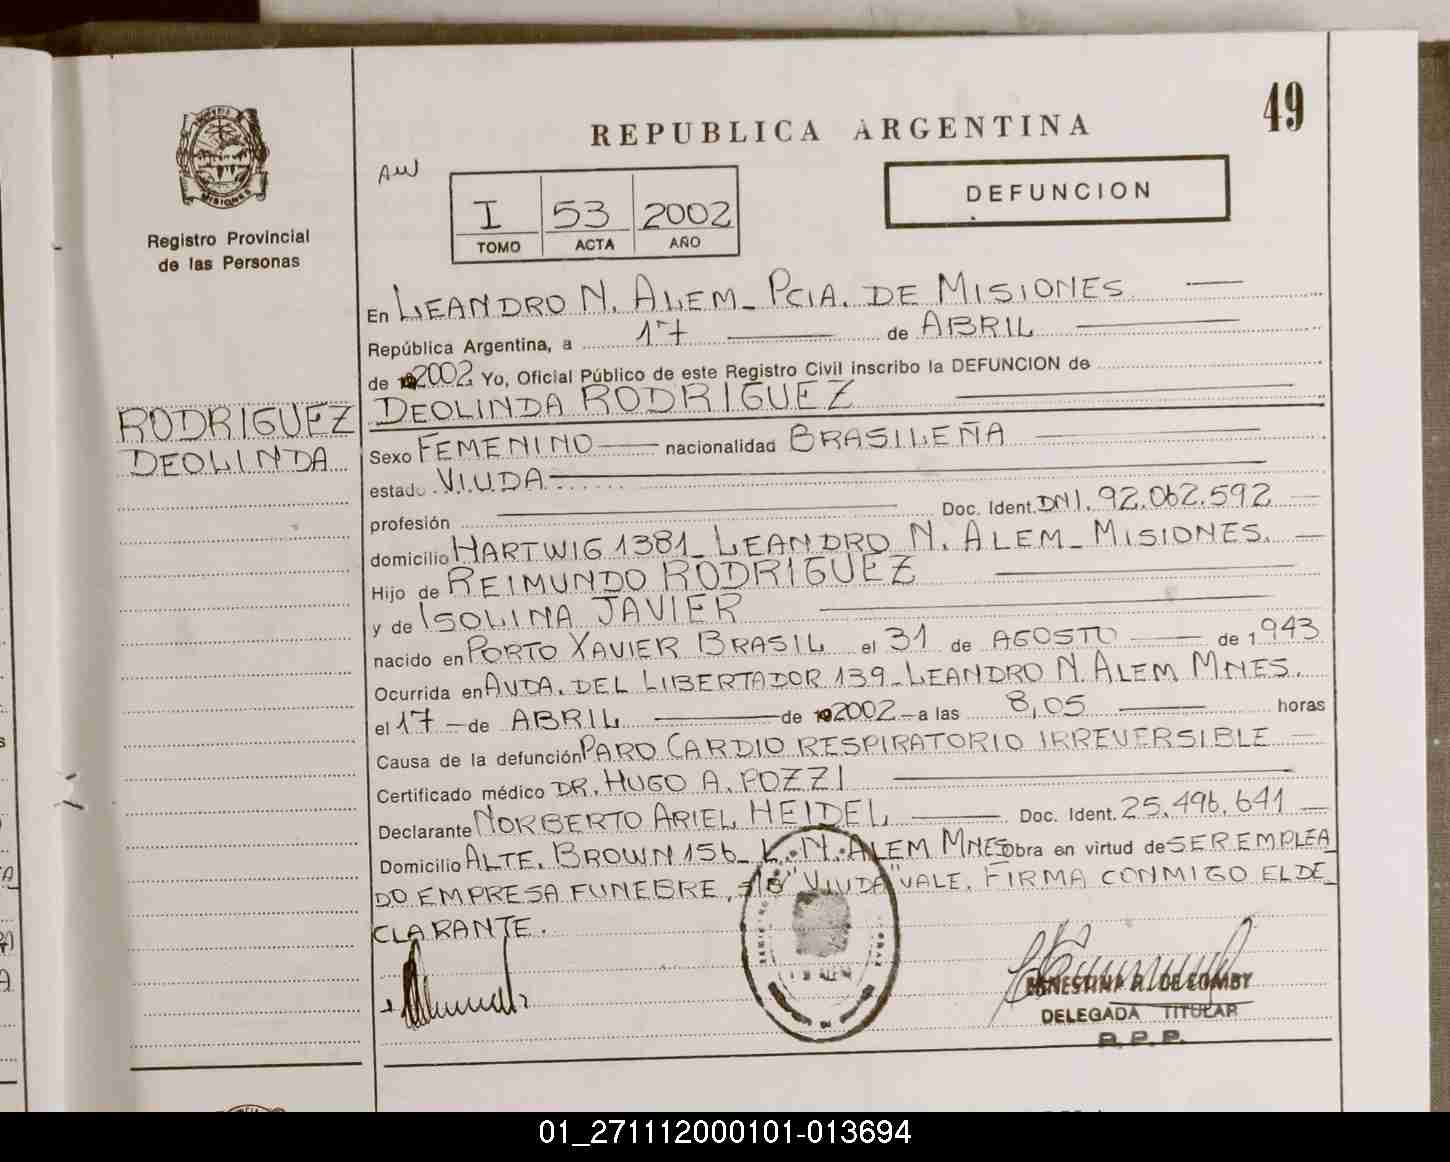 49
REPUBLICA ARGENTINA
AW
DEFUNCION
I 53 2002
TOMO ACTA AÑO
MISIONES
Registro Provincial
de las Personas
En LEANDRO N. ALEM_ PCIA. DE MISIONES
República Argentina, a 17 de ABRIL
de 2002 Yo, Oficial Público de este Registro Civil inscribo la DEFUNCION de
RODRIGUEZ
DEOLINDA
DEOLINDA RODRIGUEZ
Sexo FEMENINO nacionalidad BRASILEÑA
estado VIUDA
profesión Doc. Ident. DNI. 92.062.592
domicilio HARTWIG 1381_ LEANDRO N. ALEM_ MISIONES.
Hijo de REIMUNDO RODRIGUEZ
y de ISOLINA JAVIER
nacido en PORTO XAVIER BRASIL el 31 de AGOSTO de 1943
Ocurrida en AVDA. DEL LIBERTADOR 139_ LEANDRO N. ALEM MNES.
el 17 de ABRIL de 2002 a las 8,05 horas
Causa de la defunción PARO CARDIO RESPIRATORIO IRREVERSIBLE
Certificado médico DR. HUGO A. POZZI
Declarante NORBERTO ARIEL HEIDEL Doc. Ident. 25.496.641
Domicilio ALTE. BROWN 156_ L. N. ALEM MNES obra en virtud de SER EMPLEA
DO EMPRESA FUNEBRE, S/B "VIUDA" VALE. FIRMA CONMIGO EL DE_
CLARANTE.
DE COMBY
DELEGADA TITULAR
R.P.P.
01_271112000101-013694